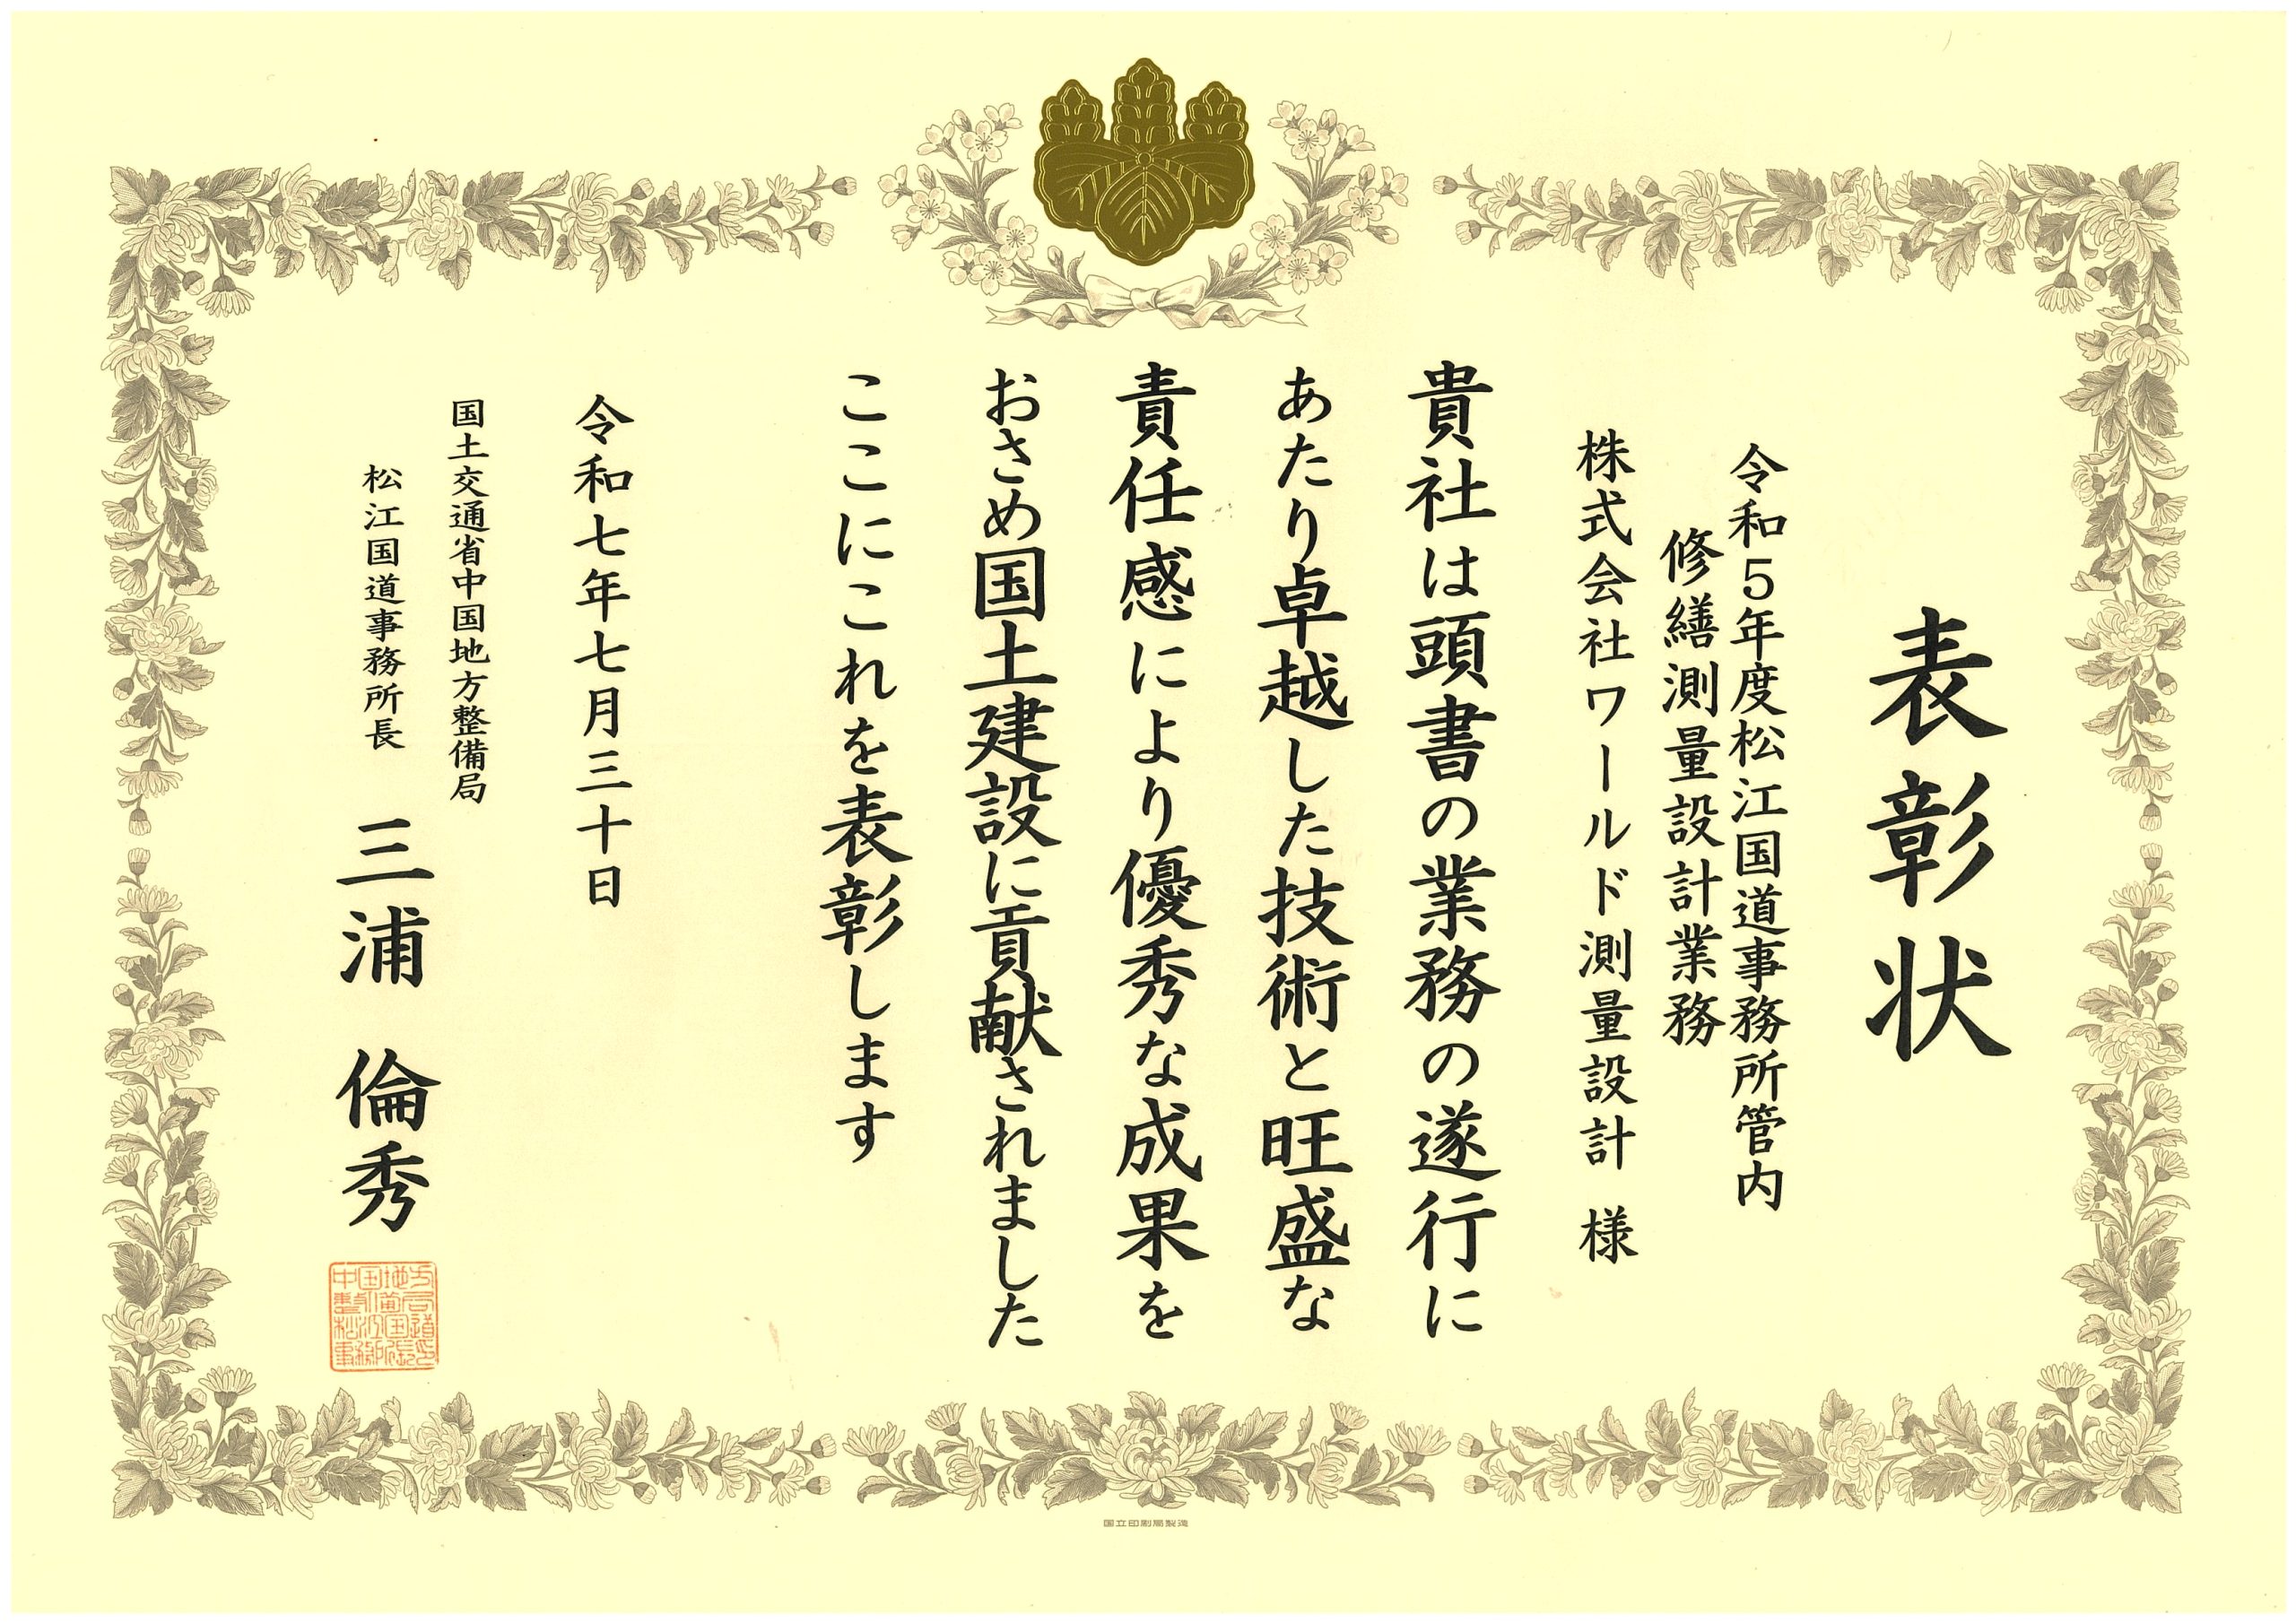 表彰状
令和5年度松江国道事務所管内
修繕測量設計業務
株式会社ワールド測量設計 様
貴社は頭書の業務の遂行に
あたり卓越した技術と旺盛な
責任感により優秀な成果を
おさめ国土建設に貢献されました
ここにこれを表彰します
令和七年七月三十日
国土交通省中国地方整備局
松江国道事務所長 三浦 倫秀
中国地方
整備局道
松江国道
事務所長印
国立印刷局製造